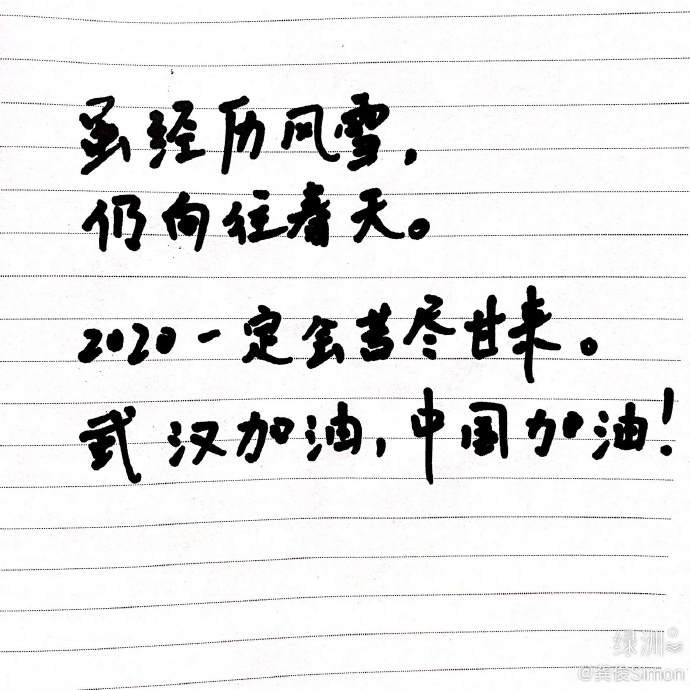 虽经历风雪，
仍向往春天。
2020一定会苦尽甘来。
武汉加油，中国加油！
绿洲
@龚俊Simon